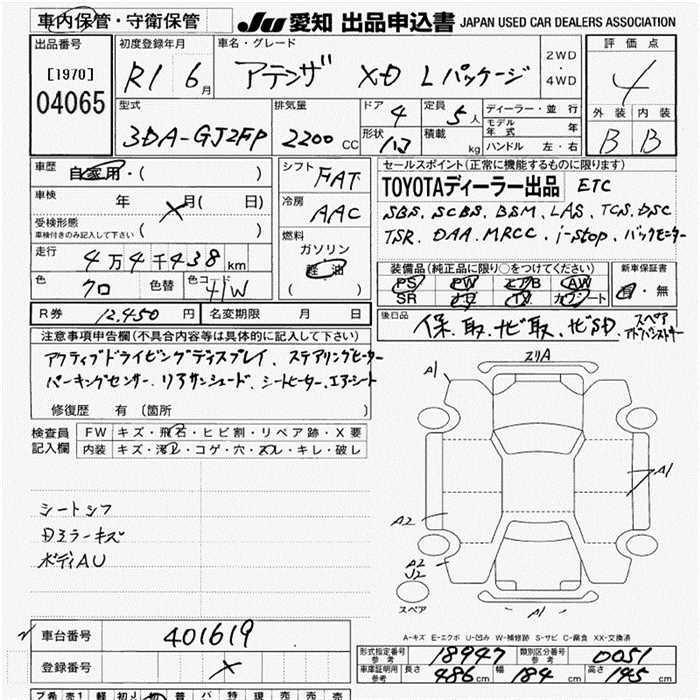 車内保管・守衛保管
JU 愛知 出品申込書 JAPAN USED CAR DEALERS ASSOCIATION
出品番号
[1970]
04065
初度登録年月
R1 6月
車名・グレード
アテンザ XD Lパッケージ
2WD
・
4WD
評価点
4
外装 内装
B B
型式
3DA-GJ2FP
排気量
2200 CC
ドア
4
形状
定員
5人
積載
kg
ディーラー・並行
モデル年式 年
ハンドル 左・右
車歴
自家用・( )
車検
年 月( 日)
受検形態
車検付きのみ記入して下さい ( )
走行
4万4千438 km
色
クロ
色替
色コード
41W
シフト
FAT
冷房
AAC
燃料
ガソリン
軽油
( )
セールスポイント(正常に機能するものに限ります)
TOYOTAディーラー出品 ETC
SBS. SCBS. BSM. LAS. TCS. DSC
TSR. DAA. MRCC. i-stop. バックモニター
装備品(純正品に限り○をつけてください)
PS PW AW
SR カワシート
新車保証書
有・無
後日品
保.取.ナビ取.ナビSD. スペア
アドバンストキー
R券 12,450 円
名変期限 月 日
注意事項申告欄(不具合内容等は具体的に記入して下さい)
アクティブドライビングディスプレイ、ステアリングヒーター
パーキングセンサー. リアサンシェード、シートヒーター.エアーシート
修復歴 有 [箇所 ]
検査員
記入欄
FW キズ・飛石・ヒビ割・リペア跡・X要
内装 キズ・汚レ・コゲ・穴・スレ・キレ・破レ
シートシワ
ミラーキズ
ボディAU
スリA
A1
A1
A2
A2
U2
A1
スペア
A-キズ E-エクボ U-凹み W-補修跡 S-サビ C-腐食 XX-交換済
車台番号
401619
登録番号
型式指定番号
参考
18947
類別区分番号
参考
0051
車庫証明用
参考
長さ 486 cm
幅 184 cm
高さ 145 cm